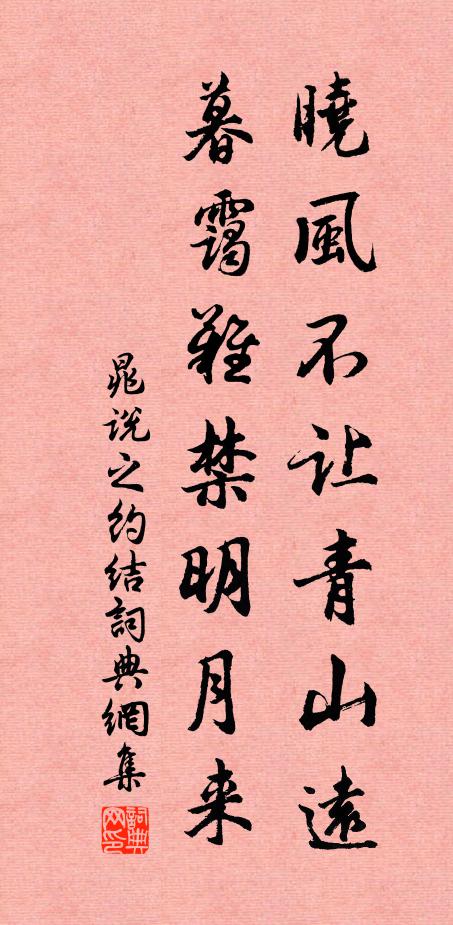 曉風不让青山遠
暮靄難禁明月来
晁说之约结詞典網集
詞典网印